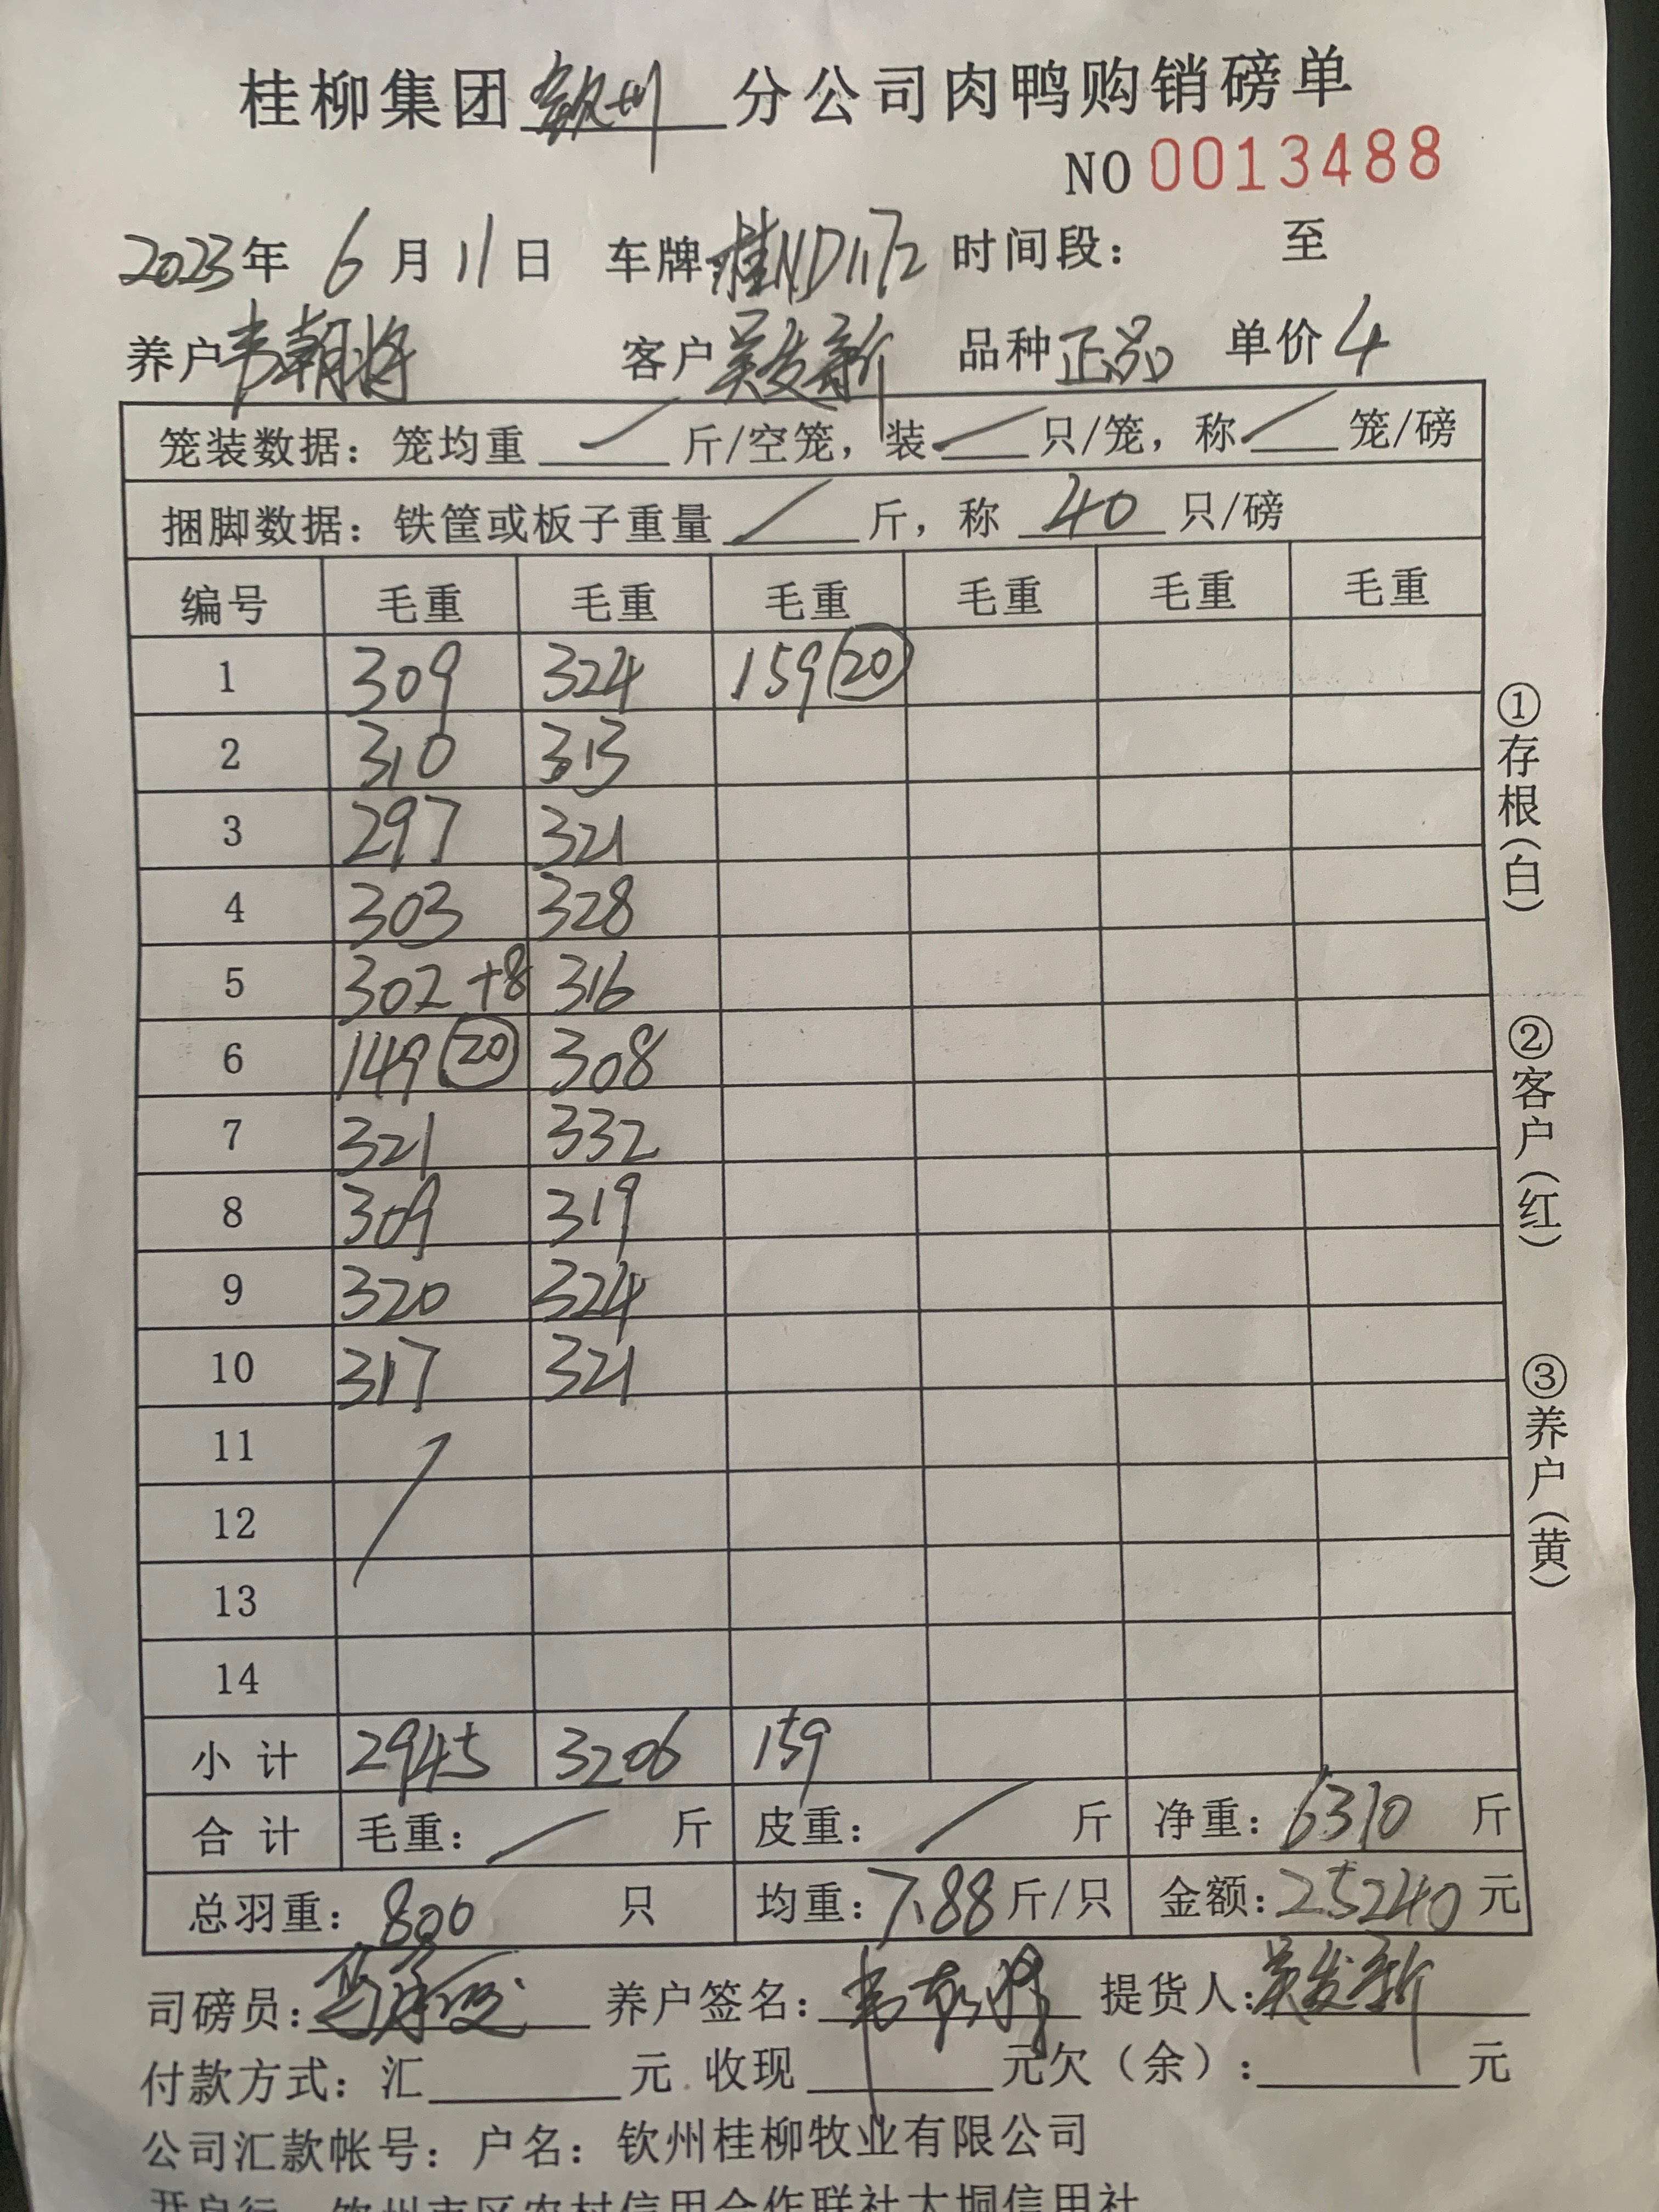 桂柳集团钦州分公司肉鸭购销磅单
NO 0013488
2023年 6月11日 车牌:桂ND1172 时间段: 至
养户韦朝将 客户吴发新 品种正品 单价4
笼装数据:笼均重 / 斤/空笼,装 / 只/笼,称 / 笼/磅
捆脚数据:铁筐或板子重量 / 斤,称 40 只/磅
编号 毛重 毛重 毛重 毛重 毛重 毛重
1 309 324 159 20
2 310 313
3 297 321
4 303 328
5 302+8 316
6 149 20 308
7 321 332
8 309 319
9 320 324
10 317 321
11
12
13
14
小计 2945 3206 159
合计 毛重: / 斤 皮重: / 斤 净重:6310 斤
总羽重:800 只 均重:7.88斤/只 金额:25240元
司磅员: 养户签名:韦朝将 提货人:吴发新
付款方式:汇 元 收现 元欠(余): 元
公司汇款帐号:户名:钦州桂柳牧业有限公司
开户行 钦州市区农村信用合作联社大垌信用社
①存根(白)
②客户(红)
③养户(黄)